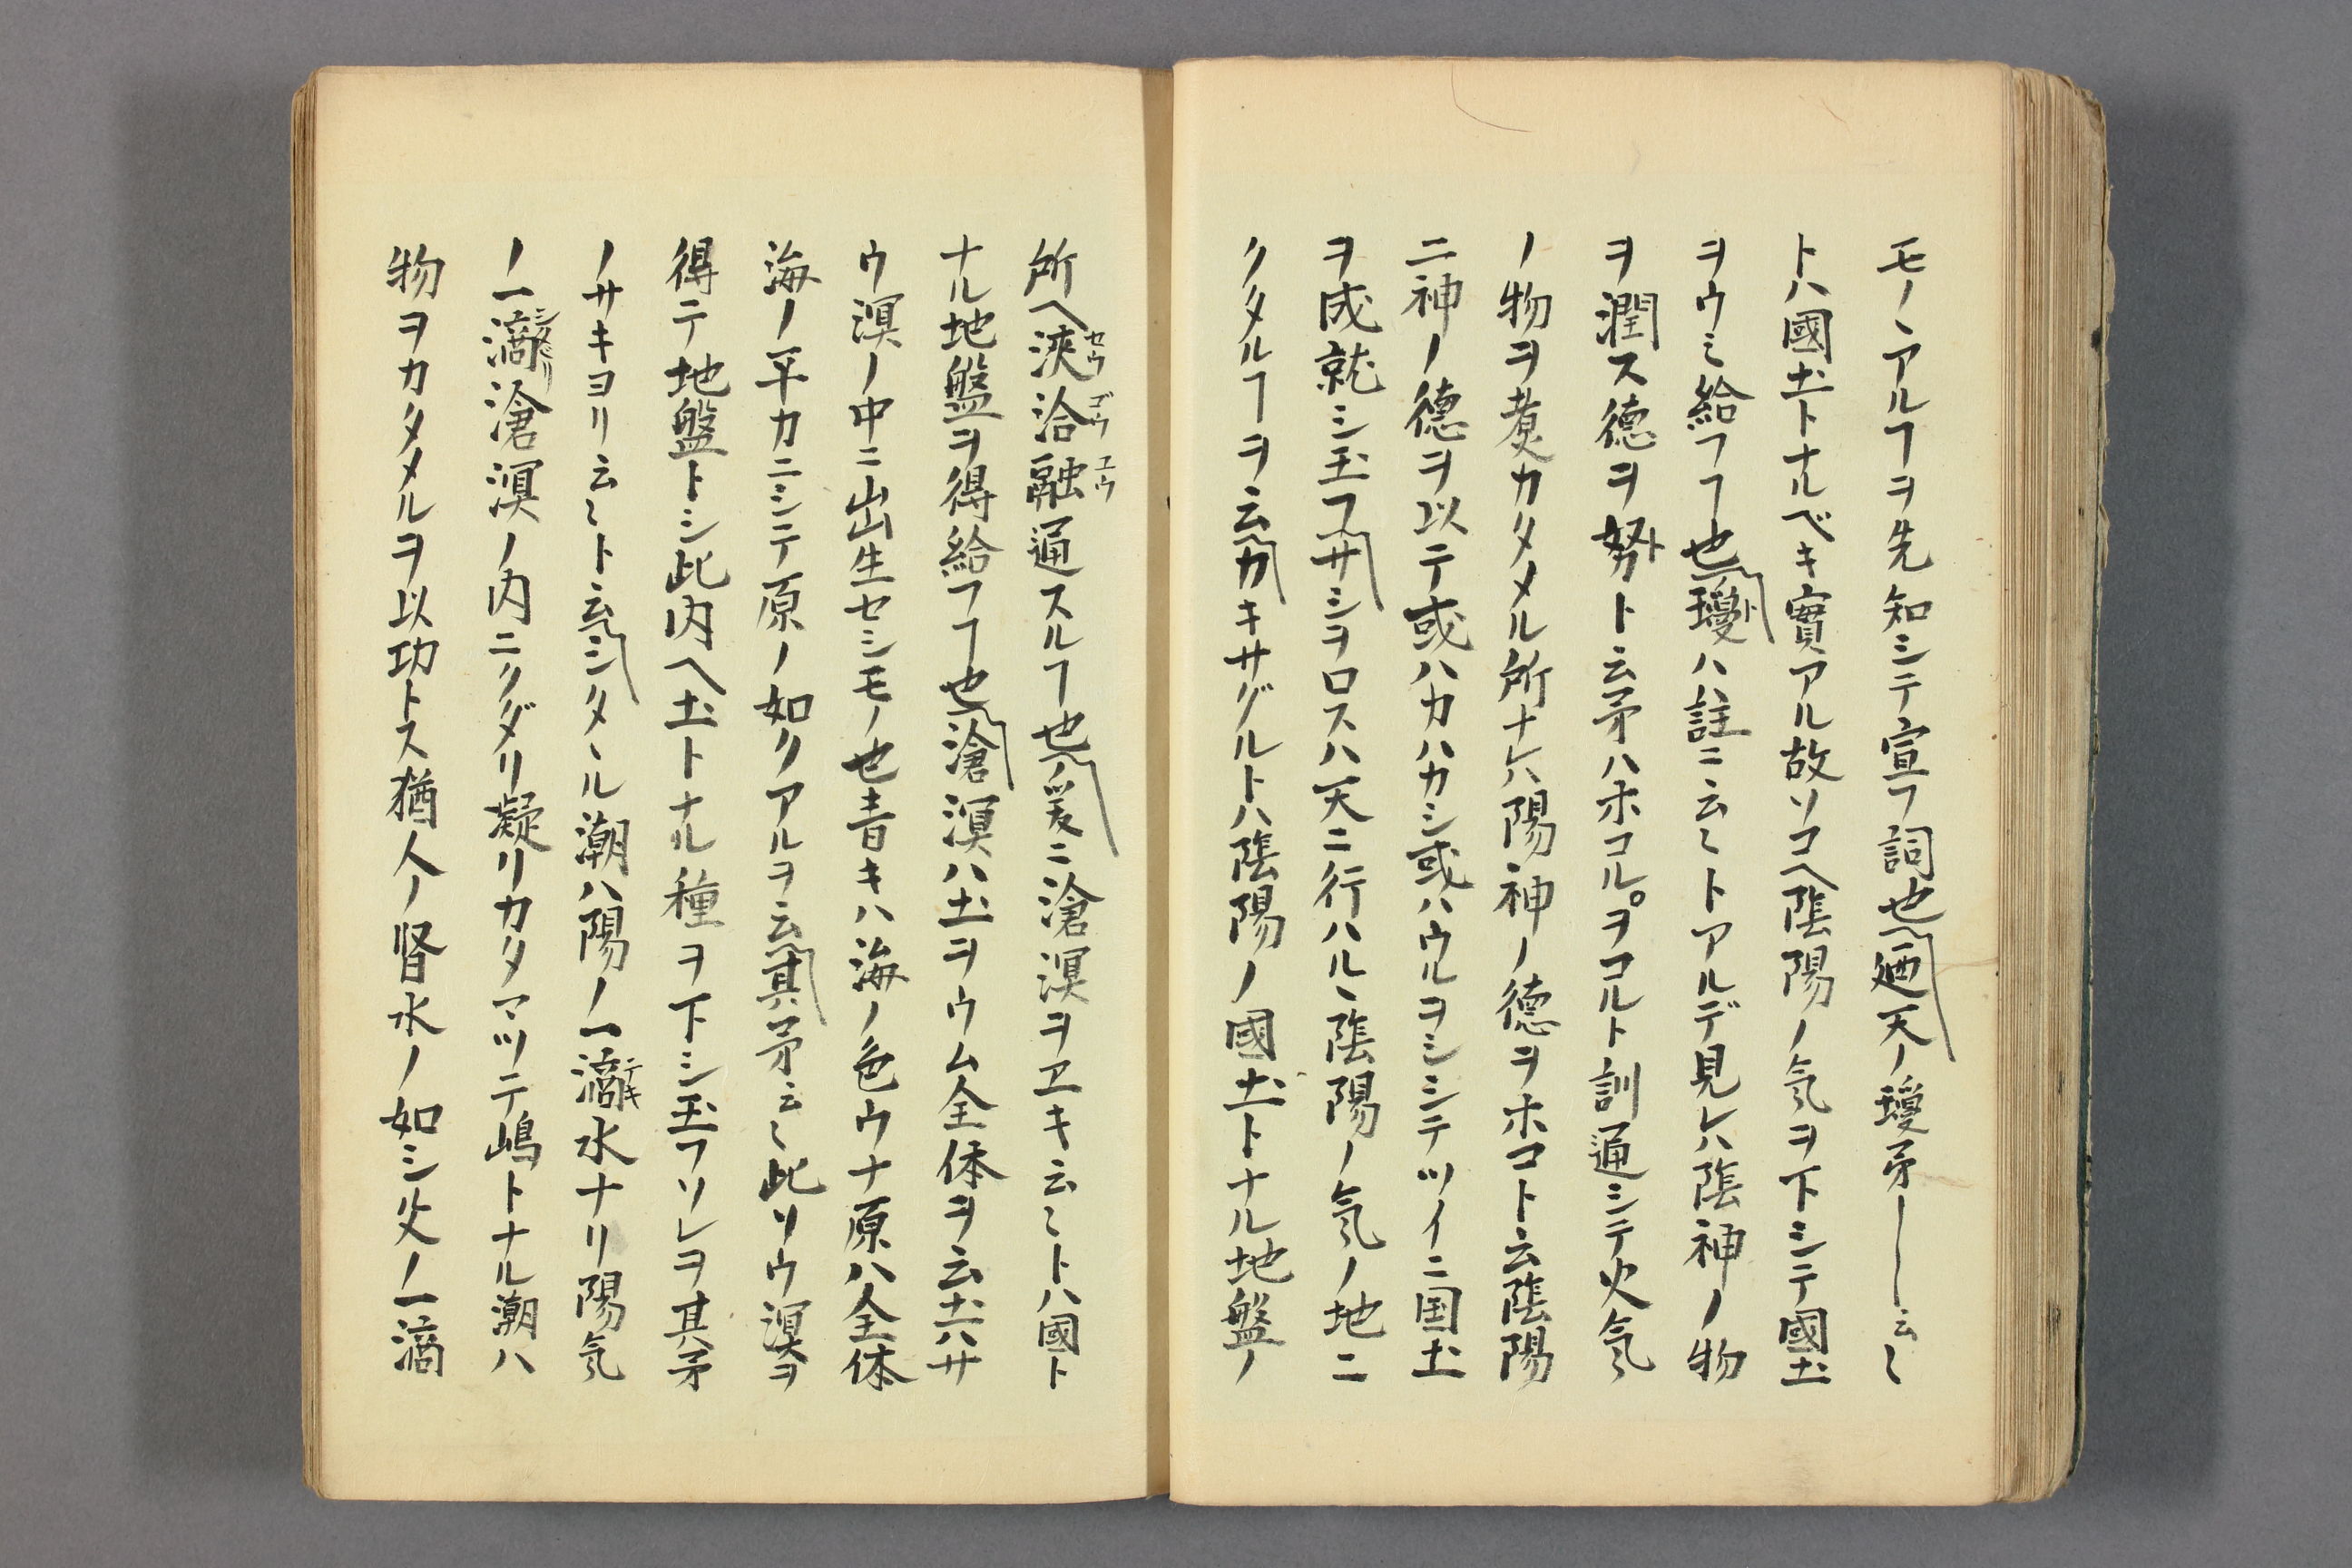 モノヽアルヿヲ先知シテ宣フ詞也廼天ノ瓊矛――云〻
トハ國土トナルベキ實アル故ソコヘ陰陽ノ気ヲ下シテ國土
ヲウミ給フヿ也瓊ハ註ニ云〻トアルデ見レハ陰神ノ物
ヲ潤ス徳ヲ努ト云矛ハホコル。ヲコルト訓通シテ火気
ノ物ヲ煑カタメル所ナレハ陽神ノ德ヲホコト云陰陽
二神ノ德ヲ以テ或ハカハカシ或ハウルヲシシテツイニ国土
ヲ成就シ玉フヿサシヲロスハ天ニ行ハルヽ陰陽ノ気ノ地ニ
クタルヿヲ云カキサグルトハ陰陽ノ國土トナル地盤ノ
所ヘ浹洽融通スルヿ也爰ニ滄溟ヲヱキ云〻トハ國ト
ナル地盤ヲ得給フヿ也滄溟ハ土ヲウム全体ヲ云土ハサ
ウ溟ノ中ニ出生セシモノ也青キハ海ノ色ウナ原ハ全体
海ノ平カニシテ原ノ如クアルヲ云其矛云〻此ソウ溟ヲ
得テ地盤トシ此内ヘ土トナル種ヲ下シ玉フソレヲ其矛
ノサキヨリ云〻ト云シタヽル潮ハ陽ノ一滴水ナリ陽気
ノ一滴滄溟ノ内ニクダリ凝リカタマツテ嶋トナル潮ハ
物ヲカタメルヲ以功トス猶人ノ腎水ノ如シ父ノ一滴